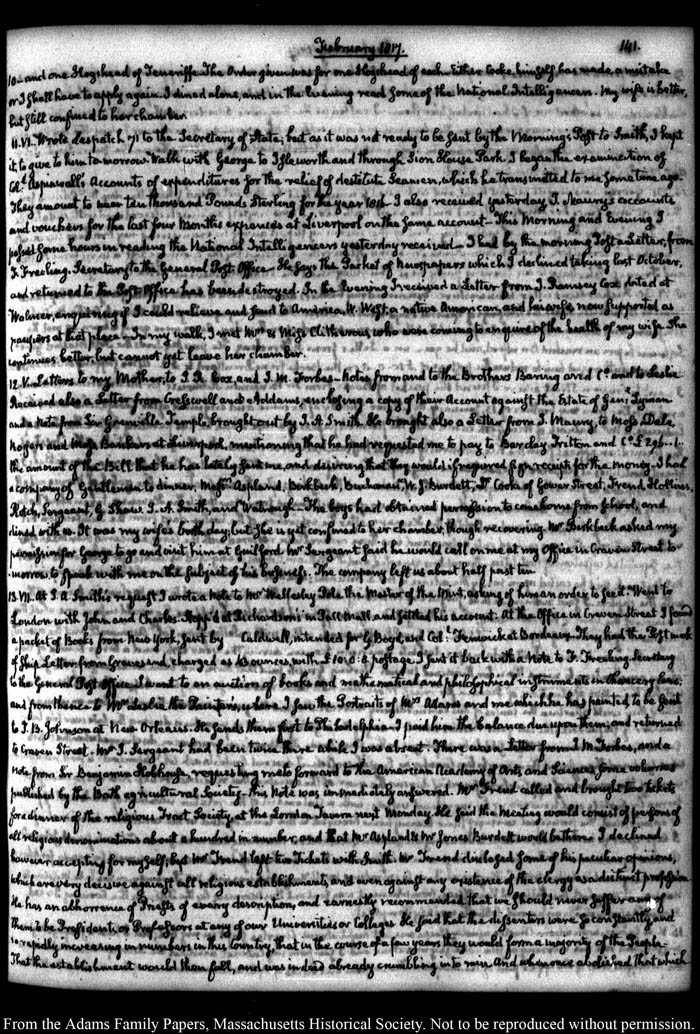 February 1817.
141.
10— and one Hogshead of Teneriffe. The Order given was for one Hogshead of each. Either Cooke himself has made a mistake
or I shall have to apply again. I dined alone, and in the Evening read some of the National Intelligencers. My wife is better,
but still confined to her chamber.
11. VI. Wrote despatch 71 to the Secretary of State; but as it was not ready to be sent by the Morning's Post to Smith, I kept
it to give to him to-morrow. Walk with George to Isleworth and through Sion House Park. I began the examination of
Col. Aspinwall's Accounts of expenditures for the relief of destitute Seamen, which he transmitted to me some time ago.
They amount to near ten thousand Pounds Sterling for the year 1816. I also received yesterday J. Maury's accounts
and vouchers for the last four Months expenses at Liverpool on the same account— This Morning and Evening I
passed some hours in reading the National Intelligencers yesterday received— I had by the morning Post a Letter, from
F. Freeling, Secretary to the General Post-Office— He says the Packet of Newspapers which I declined taking last October,
and returned to the Post-Office has been destroyed. In the Evening I received a Letter from J. Ramsey Cox dated at
enquiring if I could relieve and send to America, W. West, a native American, and his wife, now supported as
paupers at that place— In my walk, I met Mrs. & Miss Clitherow, who were coming to enquire of the health of my wife. She
continues better, but cannot yet leave her chamber.
12. V. Letters to my Mother, to J. R. Cox, and J. M. Forbes— Notes from and to the Brothers Baring and Co. and to Leslie
Received also a Letter from Cresswell and Addams, enclosing a copy of their Account against the Estate of Genl. Lyman
and a Note from Sir Grenville Temple, brought out by J. A. Smith. He brought also a Letter from J. Maury, to Messrs. Dale
Rogers and Moss Bankers at Liverpool, mentioning that he had requested me to pay to Barclay Tritton and Co. £296..1..
the amount of the Bill that he has lately sent me, and desiring that they would if required sign receipts for the money— I had
a company of Gentlemen to dinner, Messrs. Aspland, Birkbeck, Buchanan, W. J. Burdett, Dr. Cooke of Gower Street, Frend, Hollins,
Rotch, Sergeant, G. Shaw, J. A. Smith, and — The boys had obtained permission to come home from School, and
dined with us. It was my wife's birth day; but she is yet confined to her chamber, though recovering. Mr. Birkbeck asked my
permission for George to go and visit him at Guilford. Mr. Sergeant said he would call on me at my Office in Craven Street to-
morrow, to speak with me on the subject of his business. The company left us about half past ten.
13. VII. At J. A. Smith's request I wrote a Note to Mr. Wellesley Pole the Master of the Mint, asking of him an order to see it. Went to
London with John and Charles. Stopp'd at Richardson's in Pall Mall, and settled his account. At the Office in Craven Street I found
a packet of Books from New York, sent by Caldwell, intended for G. Boyd, and Col: Fenwick at Bordeaux. They had the Post mark
of Ship Letter from Gravesend, charged as ounces, with £10:10:8 postage. I sent it back with a Note to F. Freeling Secretary
to the General Post Office. I went to an auction of books and mathematical and philosophical instruments in Chancery Lane;
and from thence to Mr. Leslie the Painter's, where I saw the Portraits of Mrs. Adams and me which he has painted to be sent
to J. B. Johnson at New Orleans. He sends them first to Philadelphia. I paid him the balance due upon them; and returned
to Craven Street. Mr. J. Sergeant had been twice there while I was absent. There was a Letter from J. M. Forbes, and a
Note from Sir Benjamin Hobhouse, requesting me to forward to the American Academy of Arts, and Sciences, some volumes
published by the Bath agricultural Society— This Note was immediately answered. Mr. Frend called and brought two tickets
for a dinner of the religious Tract Society, at the London Tavern next Monday. He said the Meeting would consist of persons of
all religious denominations about a hundred in number, and that Mr. Aspland & Mr. Jones Burdett would be there. I declined
however accepting for myself; but Mr. Frend left two Tickets with Smith. Mr. Frend disclosed some of his peculiar opinions,
which are very decisive against all religious establishments, and even against any existence of the clergy as a distinct profession
He has an abhorrence of Priests of every description, and earnestly recommended that we should never suffer any of
them to be Presidents, or Professors at any of our Universities or Colleges. He said that the dissenters were so constantly, and
so rapidly increasing in numbers in this Country, that in the course of a few years they would form a majority of the People.
That the establishment would then fall, and was indeed already crumbling into ruin. And when once abolished that which
From the Adams Family Papers, Massachusetts Historical Society. Not to be reproduced without permission.